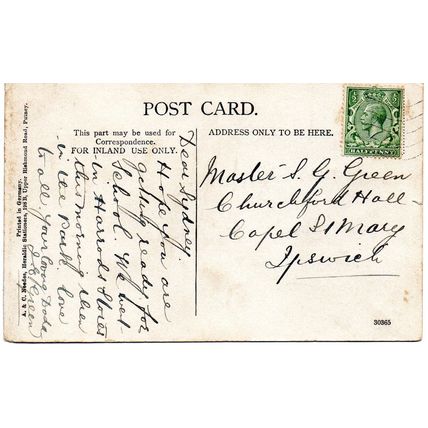 POST CARD.
This part may be used for
Correspondence.
FOR INLAND USE ONLY.
ADDRESS ONLY TO BE HERE.
HALF PENNY
Dear Sydney.
Hope you are
getting ready for
School. We met
in Harrods Stores
this morning then
in the Park love
to all your loving Dada
J. G. Green
Master S. G. Green
Churchford Hall
Capel St Mary
Ipswich
Printed in Germany.
A. & C. Heraldic Stationers, Upper Richmond Road, Putney.
30365